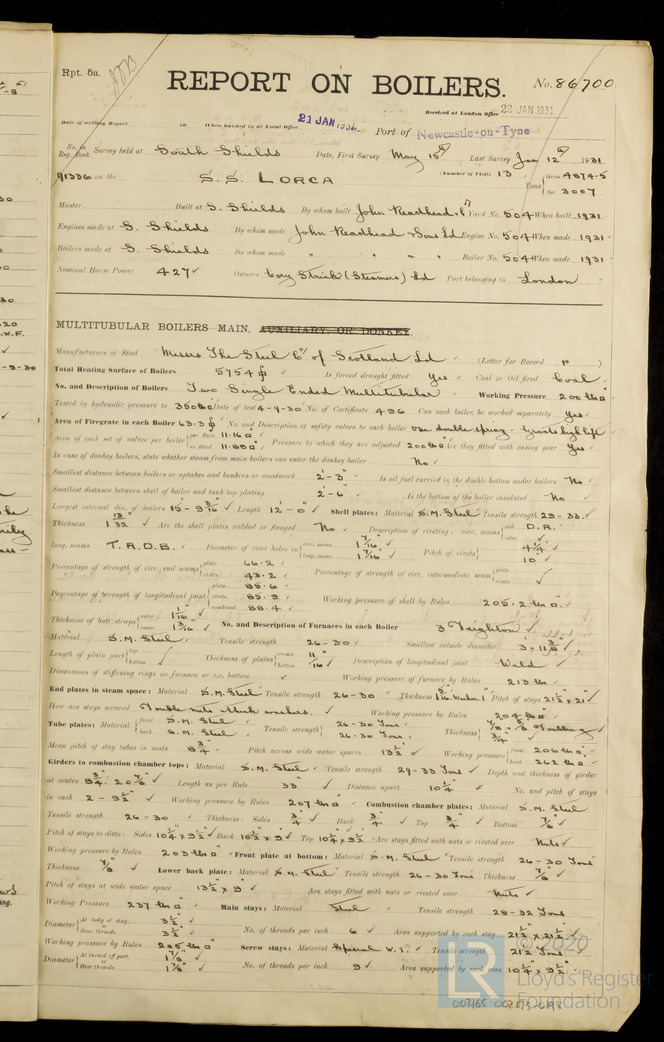 Rpt. 5a.
REPORT ON BOILERS.
No. 86700
Received at London Office 22 JAN 1931
Date of writing Report 19 When handed in at Local Office 21 JAN 1931 Port of Newcastle-on-Tyne
No. in Reg. Book. Survey held at South Shields Date, First Survey May 15th Last Survey Jan 12th 1931
91336 on the S.S. LORCA (Number of Visits 13) Tons Gross 4874.5 Net 3007
Master Built at S. Shields By whom built John Readhead & Yard No. 504 When built 1931
Engines made at S. Shields By whom made John Readhead & Sons Ld Engine No. 504 When made 1931
Boilers made at S. Shields By whom made " " " " Boiler No. 504 When made 1931
Nominal Horse Power 427 Owners Cory Strick (Steamers) Ld Port belonging to London
MULTITUBULAR BOILERS MAIN, AUXILIARY, OR DONKEY.
Manufacturers of Steel Messrs The Steel Co of Scotland Ld (Letter for Record )
Total Heating Surface of Boilers 5754 Is forced draught fitted Yes Coal or Oil fired Coal
No. and Description of Boilers Two Single Ended Multitubular Working Pressure 200 lbs
Tested by hydraulic pressure to 350 lbs Date of test 4-9-30 No. of Certificate 496 Can each boiler be worked separately Yes
Area of Firegrate in each Boiler 63.3 No. and Description of safety valves to each boiler One double spring - high lift
Area of each set of valves per boiler per Rule 11.16 as fitted Pressure to which they are adjusted 200 lbs Are they fitted with easing gear Yes
In case of donkey boilers, state whether steam from main boilers can enter the donkey boiler No
Smallest distance between boilers or uptakes and bunkers or woodwork 2'-3" Is oil fuel carried in the double bottom under boilers No
Smallest distance between shell of boiler and tank top plating 2'-6" Is the bottom of the boiler insulated No
Largest internal dia. of boilers 15'-9 Length 12'-0" Shell plates: Material S.M. Steel Tensile strength 29-33
Thickness 1 13/32 Are the shell plates welded or flanged No Description of riveting: circ. seams end D.R. inter.
long. seams T.R.D.B. Diameter of rivet holes in circ. seams 1 7/16 long. seams 1 7/16 Pitch of rivets 4 1/4 10
Percentage of strength of circ. end seams plate 66.2 rivets 43.2 Percentage of strength of circ. intermediate seam plate rivets
Percentage of strength of longitudinal joint plate 85.6 rivets 85.9 combined 88.4 Working pressure of shell by Rules 205.2 lbs
Thickness of butt straps outer 1 1/16 inner 1 3/16 No. and Description of Furnaces in each Boiler 3 Deighton
Material S.M. Steel Tensile strength 26-30 Smallest outside diameter
Length of plain part top bottom Thickness of plates crown bottom 11/16 Description of longitudinal joint Weld
Dimensions of stiffening rings on furnace or c.c. bottom Working pressure of furnace by Rules 213 lbs
End plates in steam space: Material S.M. Steel Tensile strength 26-30 Thickness Pitch of stays 21 1/2 x 21
How are stays secured Double nuts thick washers. Working pressure by Rules 204 lbs
Tube plates: Material front S.M. Steel back S.M. Steel Tensile strength 26-30 Tons 26-30 Tons Thickness
Mean pitch of stay tubes in nests 8 3/4 Pitch across wide water spaces 13 1/2 Working pressure front 206 lbs back 262 lbs
Girders to combustion chamber tops: Material S.M. Steel Tensile strength 29-33 Tons Depth and thickness of girder
at centre 8 3/4. 2@ 7/8 Length as per Rule 33" Distance apart 10 1/4 No. and pitch of stays
in each 2 - 9 1/2" Working pressure by Rules 207 lbs Combustion chamber plates: Material S.M. Steel
Tensile strength 26-30 Thickness: Sides 3/4 Back 3/4 Top 3/4 Bottom 7/8
Pitch of stays to ditto: Sides 10 1/4 x 9 1/2 Back 10 1/2 x 9 Top 10 1/4 x 9 1/2 Are stays fitted with nuts or riveted over Nuts
Working pressure by Rules 203 lbs Front plate at bottom: Material S.M. Steel Tensile strength 26-30 Tons
Thickness 7/8 Lower back plate: Material S.M. Steel Tensile strength 26-30 Tons Thickness 7/8
Pitch of stays at wide water space 13 1/2 x 9 Are stays fitted with nuts or riveted over Nuts
Working Pressure 237 lbs Main stays: Material Steel Tensile strength 28-32 Tons
Diameter At body of stay, or Over threads 3 1/2 3 1/2 No. of threads per inch 6 Area supported by each stay 21 1/2 x 21 1/2
Working pressure by Rules 205 lbs Screw stays: Material Special W.I. Tensile strength 21 1/2 Tons
Diameter At turned off part, or Over threads 1 7/8 1 7/8 No. of threads per inch 9 Area supported by each stay 10 1/4 x 9 1/2
© 2020
LR
Lloyd's Register
Foundation
002165-002175-0195